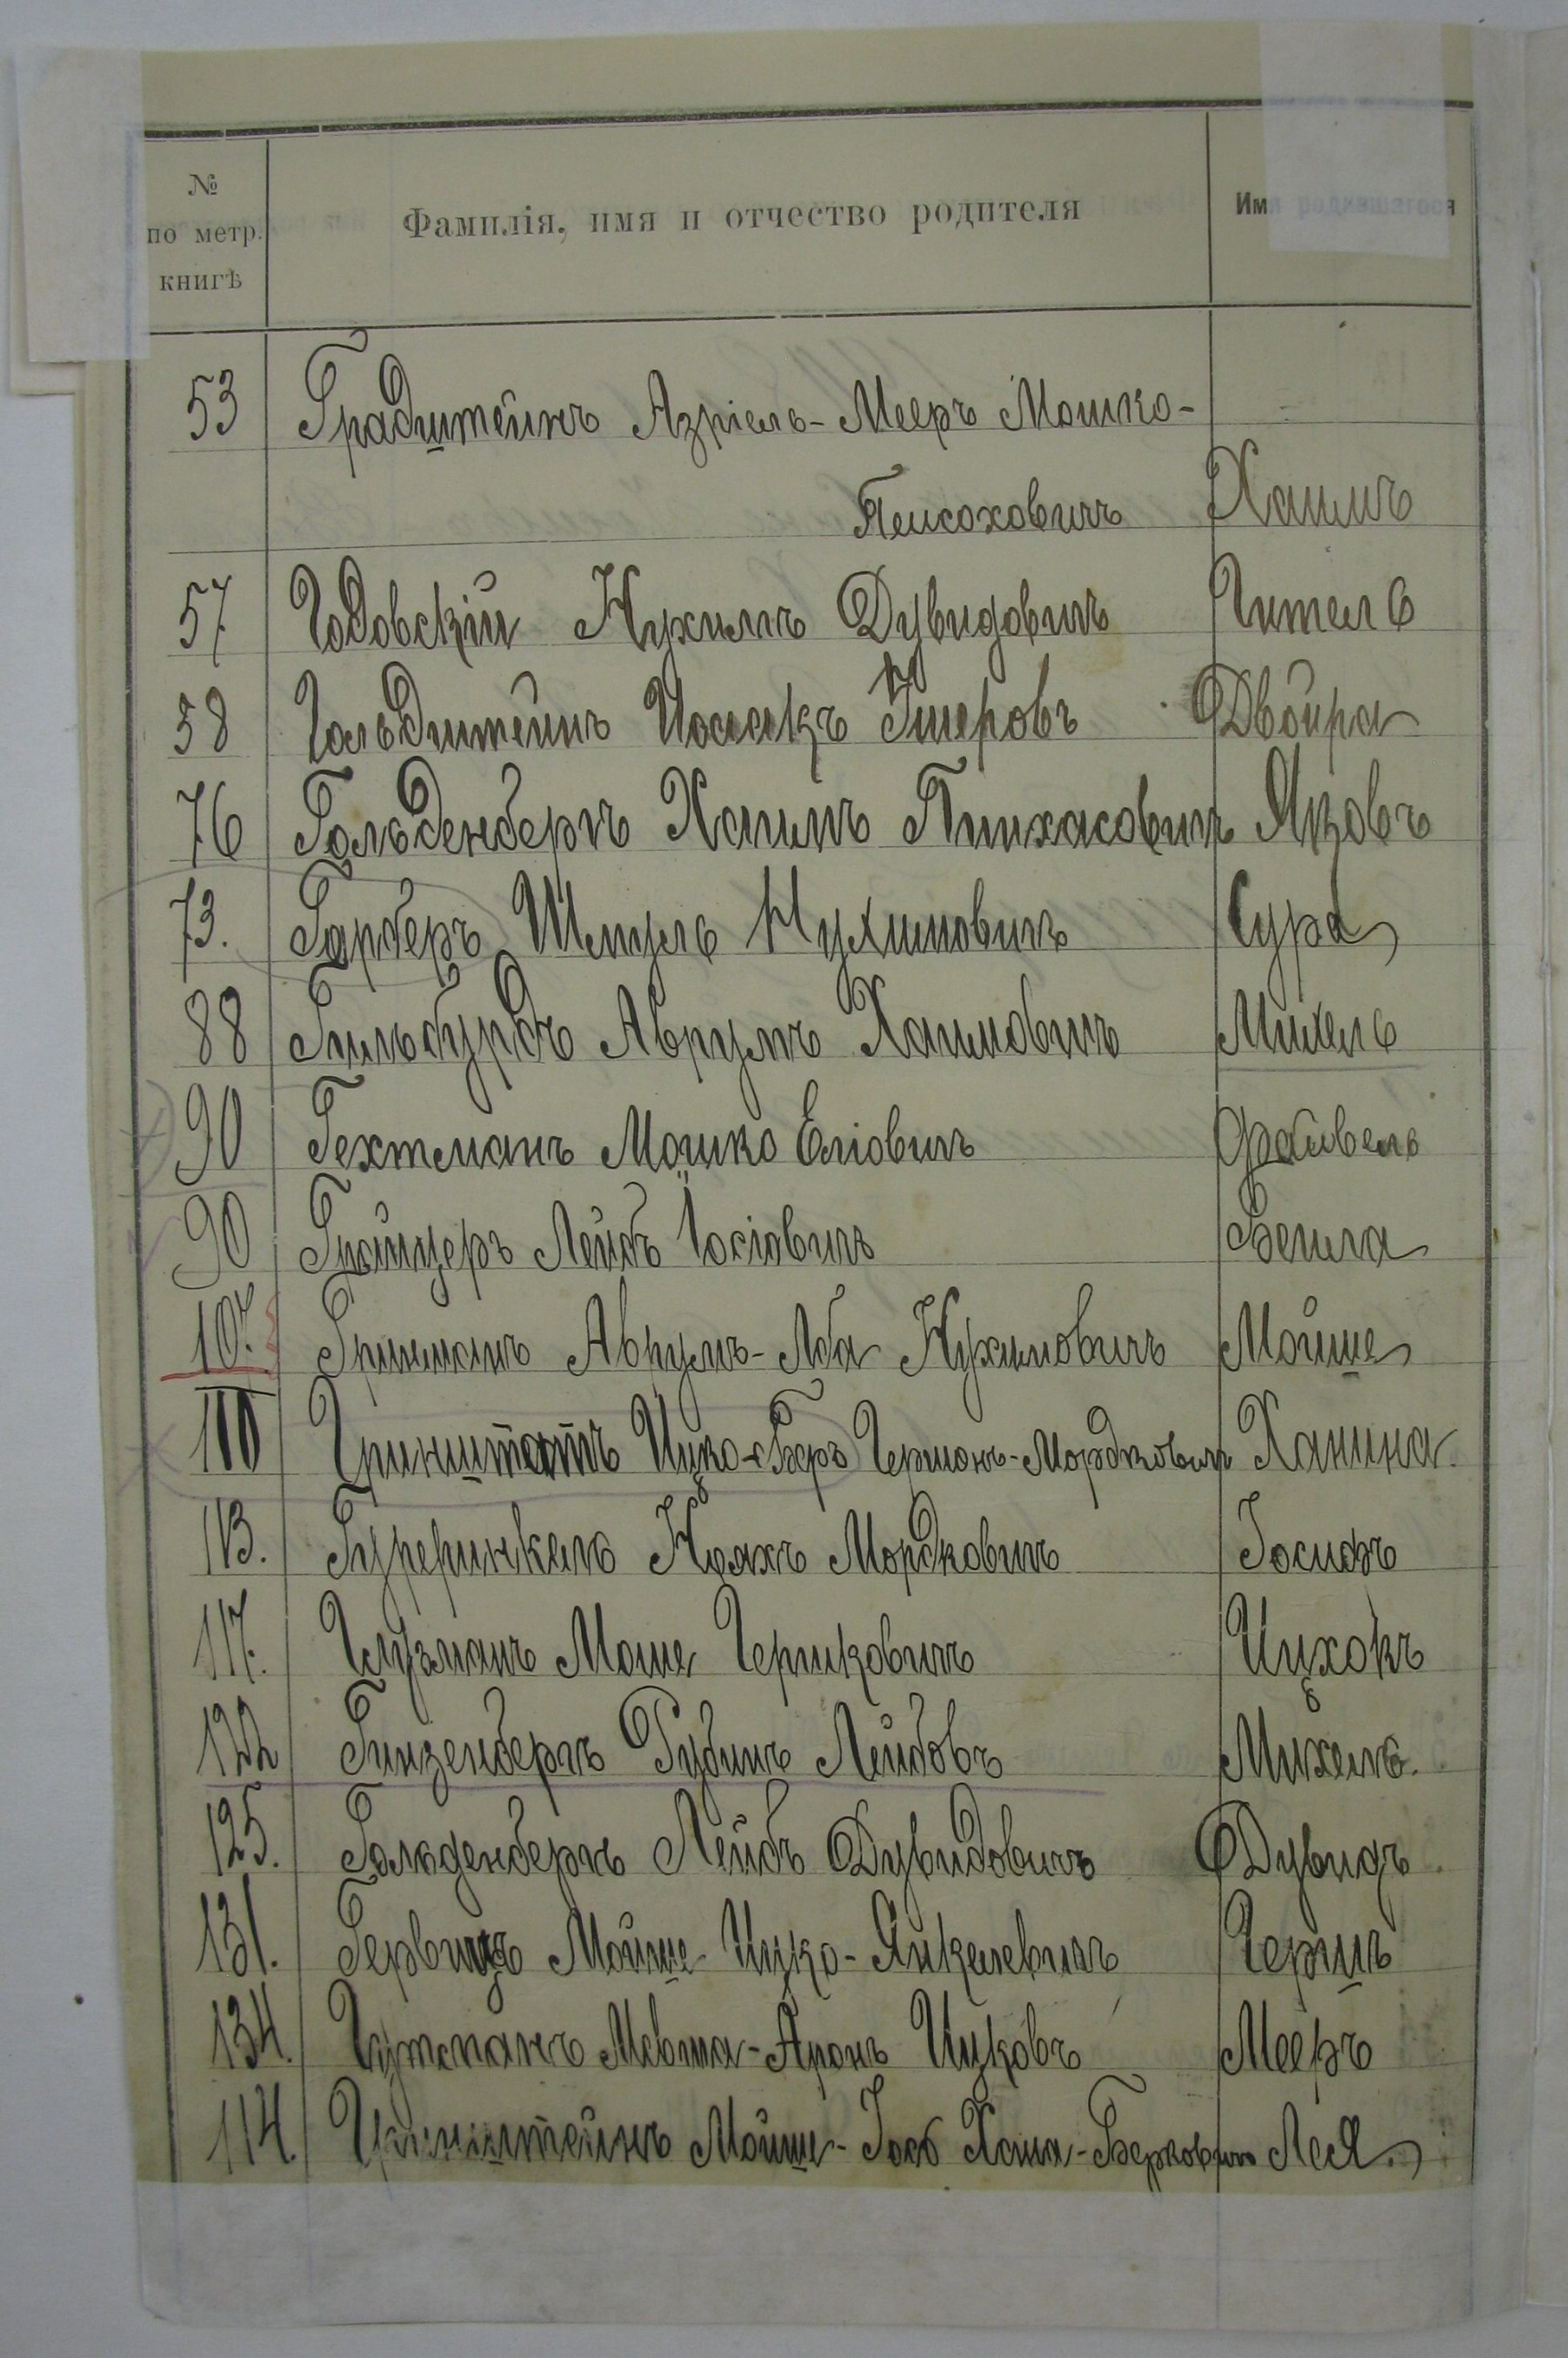 № по метр. книгѣ Фамилія, имя и отчество родителя Имя родившагося
53 Градштейнъ Азріель-Мееръ Мошко-
Пейсоховичъ Хаимъ
57 Годовскій Нухимъ Дувидовичъ Гитель
58 Гольдштейнъ Иосекъ Ушеровъ Двойра
76 Гольденбергъ Хаимъ Пинхасовичъ Яковъ
73. Гарберъ Шмуль Нухимовичъ Сура
88 Гильбурдъ Аврумъ Хаимовичъ Михель
90 Гехтманъ Мошко Еліовичъ Файвель
90 Лейбъ Іосіовичъ Бейла
107. Гринманъ Аврумъ-Аба Нухимовичъ Мойше
110 Гринштатъ Ицко-Беръ Гершонъ-Мордковичъ Ханина
113. Ноахъ Мордковичъ Іосифъ
117. Глузманъ Моше Гершковичъ Ицхокъ
122 Гинзенбергъ Рубинъ Лейбовъ Михель.
125. Гольденбергъ Лейбъ Дувидовичъ Дувидъ
131. Гервицъ Мойше-Ицко-Янкелевичъ Гершъ
134. Гутманъ Мевша-Аронъ Ицковъ Мееръ
114. Гринштейнъ Мойше-Іось Хона-Берковичъ Лея